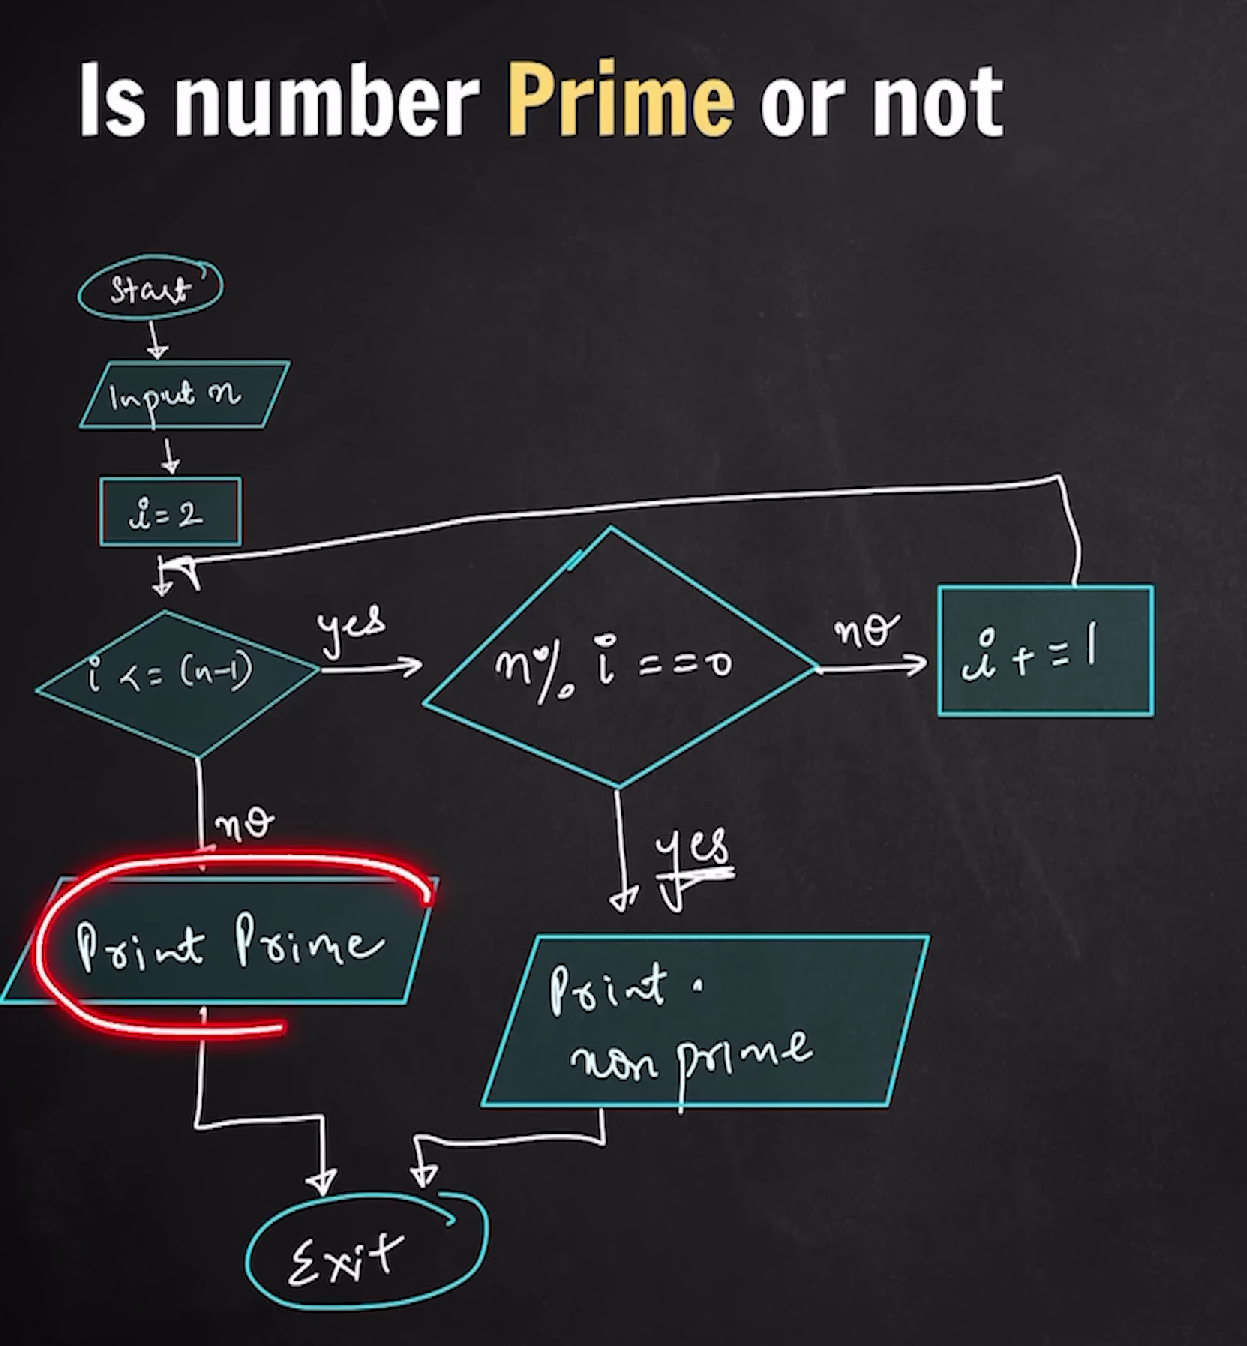 Is number Prime or not
Start
Input n
i=2
i <= (n-1)
yes
n% i ==0
no
i+=1
no
yes
Print Prime
Print
non prime
Exit